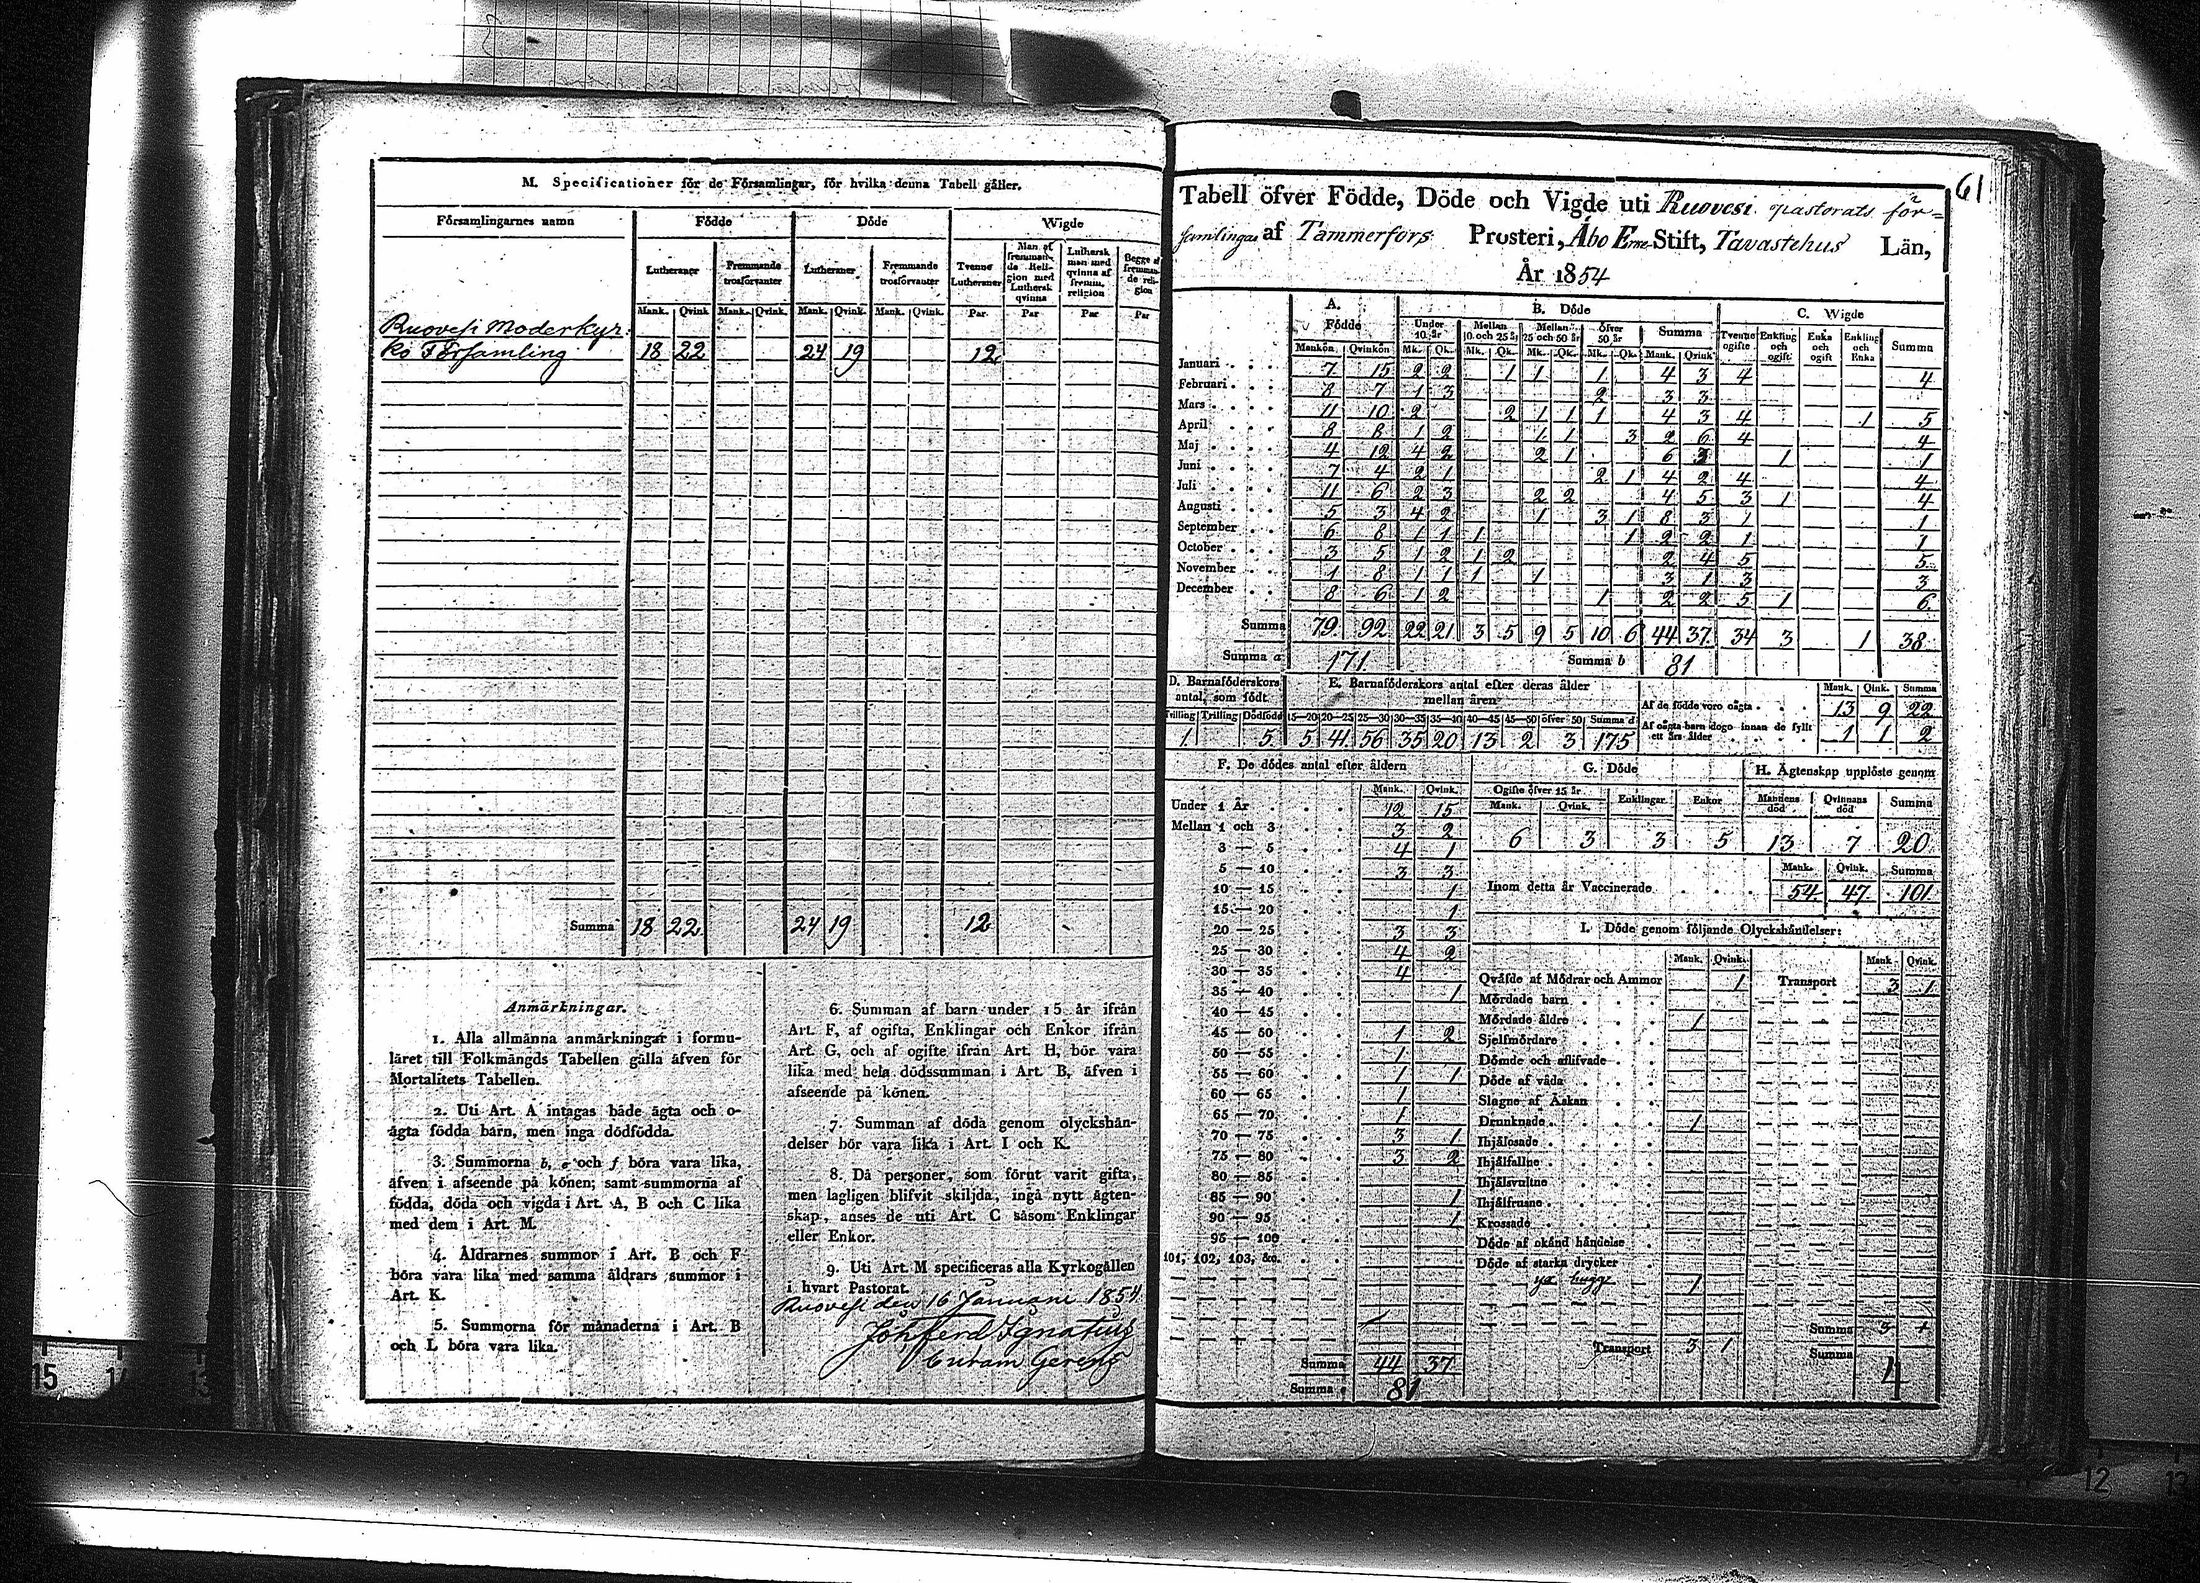 M. Specificationer för de Församlingar, för hvilka denna Tabell gäller.
Församlingarnes namn Födde Döde Wigde
Lutheraner Fremmande trosförvanter Lutheraner Fremmande trosförvanter Tvenne Lutheraner Man af fremmande Religion med Luthersk qvinna Luthersk man med qvinna af fremm. religion Begge af fremmande religion
Mank. Qvink Mank. Qvink. Mank. Qvink. Mank. Qvink. Par Par Par Par
Ruovesi Moderkyr-
ko Församling 18 22 24 19 12
Summa 18 22 24 19 12
Anmärkningar.
1. Alla allmänna anmärkningar i formu-
läret till Folkmängds Tabellen gälla äfven för
Mortalitets Tabellen.
2. Uti Art. A intagas både ägta och o-
ägta födda barn, men inga dödfödda.
3. Summorna b, e och f böra vara lika,
äfven i afseende på könen; samt summorna af
födda, döda och vigda i Art. A, B och C lika
med dem i Art. M.
4. Åldrarnes summor i Art. B och F
böra vara lika med samma åldrars summor i
Art. K.
5. Summorna för månaderna i Art. B
och L böra vara lika.
6. Summan af barn under 15 år ifrån
Art. F, af ogifta, Enklingar och Enkor ifrån
Art. G, och af ogifte ifrån Art. H, bör vara
lika med hela dödssumman i Art. B, äfven i
afseende på könen.
7. Summan af döda genom olyckshän-
delser bör vara lika i Art. I och K.
8. Då personer, som förut varit gifta,
men lagligen blifvit skiljda, ingå nytt ägten-
skap, anses de uti Art. C såsom Enklingar
eller Enkor.
9. Uti Art. M specificeras alla Kyrkogällen
i hvart Pastorat.
Ruovesi den 16 Januari 1854
Joh Ferd Ignatius
Curam Gerens
61
Tabell öfver Födde, Döde och Vigde uti Ruovesi pastorats för-
samlingar af Tammerfors Prosteri, Åbo Erke-Stift, Tavastehus Län,
År 1854
A. Födde B. Döde C. Wigde
Under 10 år Mellan 10 och 25 år Mellan 25 och 50 år öfver 50 år Summa Tvenne ogifte Enkling och ogift Enka och ogift Enkling och Enka Summa
Mankön. Qvinkön Mk. Qk. Mk. Qk. Mk. Qk. Mk. Qk. Mank. Qvink
Januari 7 15 2 2 1 1 1 4 3 4 4
Februari 8 7 1 3 2 3 3
Mars 11 10 2 2 1 1 1 4 3 4 1 5
April 8 8 1 2 1 1 3 2 6 4 4
Maj 4 12 4 2 2 1 6 3 1 1
Juni 7 4 2 1 2 1 4 2 4 4
Juli 11 6 2 3 2 2 4 5 3 1 4
Augusti 5 3 4 2 1 3 1 8 3 1 1
September 6 8 1 1 1 1 2 2 1 1
October 3 5 1 2 1 2 2 4 5 5
November 1 8 1 1 1 1 3 1 3 3
December 8 6 1 2 1 2 2 5 1 6
Summa 79 92 22 21 3 5 9 5 10 6 44 37 34 3 1 38
Summa a 171 Summa b 81
D. Barnaföderskors antal, som födt
Tvilling Trilling Dödfödde
1 5
E. Barnaföderskors antal efter deras ålder
mellan åren
15—20 20—25 25—30 30—35 35—40 40—45 45—50 öfver 50 Summa d
5 41 56 35 20 13 2 3 175
Mank. Qink. Summa
Af de födde voro oägta 13 9 22
Af oägta barn dogo innan de fyllt
ett års ålder 1 1 2
F. De dödes antal efter åldern
Mank. Qvink.
Under 1 År 12 15
Mellan 1 och 3 3 2
3 — 5 4 1
5 — 10 3 3
10 — 15 1
15 — 20 1
20 — 25 3 3
25 — 30 4 2
30 — 35 4
35 — 40 1
40 — 45
45 — 50 1 2
50 — 55 1
55 — 60 1 1
60 — 65 1
65 — 70 1
70 — 75 3 1
75 — 80 3 2
80 — 85
85 — 90 1
90 — 95 1
95 — 100
101, 102, 103, &c.
Summa 44 37
Summa e 81
G. Döde
Ogifte öfver 15 år Enklingar Enkor
Mank. Qvink.
6 3 3 5
H. Ägtenskap upplöste genom
Mannens död Qvinnans död Summa
13 7 20
Mank. Qvink. Summa
Inom detta år Vaccinerade 54 47 101
I. Döde genom följande Olyckshändelser:
Mank. Qvink. Mank Qvink.
Qväfde af Mödrar och Ammor 1 Transport 3 1
Mördade barn
Mördade äldre 1
Sjelfmördare
Dömde och aflifvade
Döde af våda
Slagne af Åskan
Drunknade 1
Ihjälosade
Ihjälfallne
Ihjälsvultne
Ihjälfrusne
Krossade
Döde af okänd händelse
Döde af starka drycker
1
Transport 3 1
Summa 3 1
Summa 4